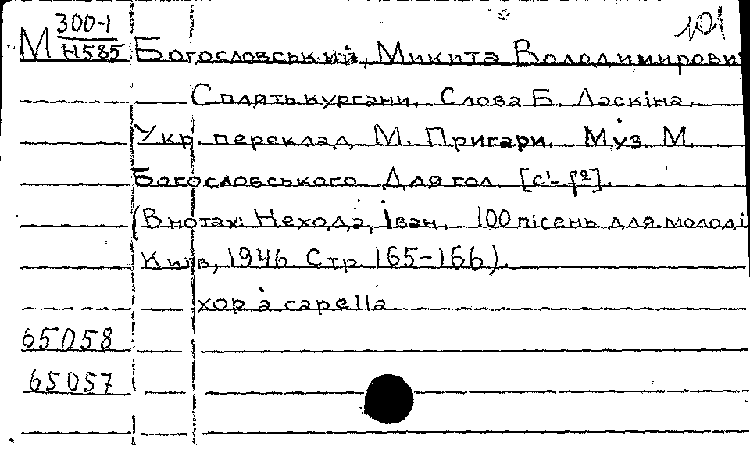 101
М 300-1
Н585 Богословський, Микита Володимирови
Сплять кургани. Слова Б. Ласкіна.
Укр. переклад М. Пригари. Муз. М.
Богословського. Для гол. [c¹-f²].
(В нотах: Нехода, Іван. 100 пісень для молоді
Київ, 1946. Стр. 165-166).
хор a capella
65058
65057